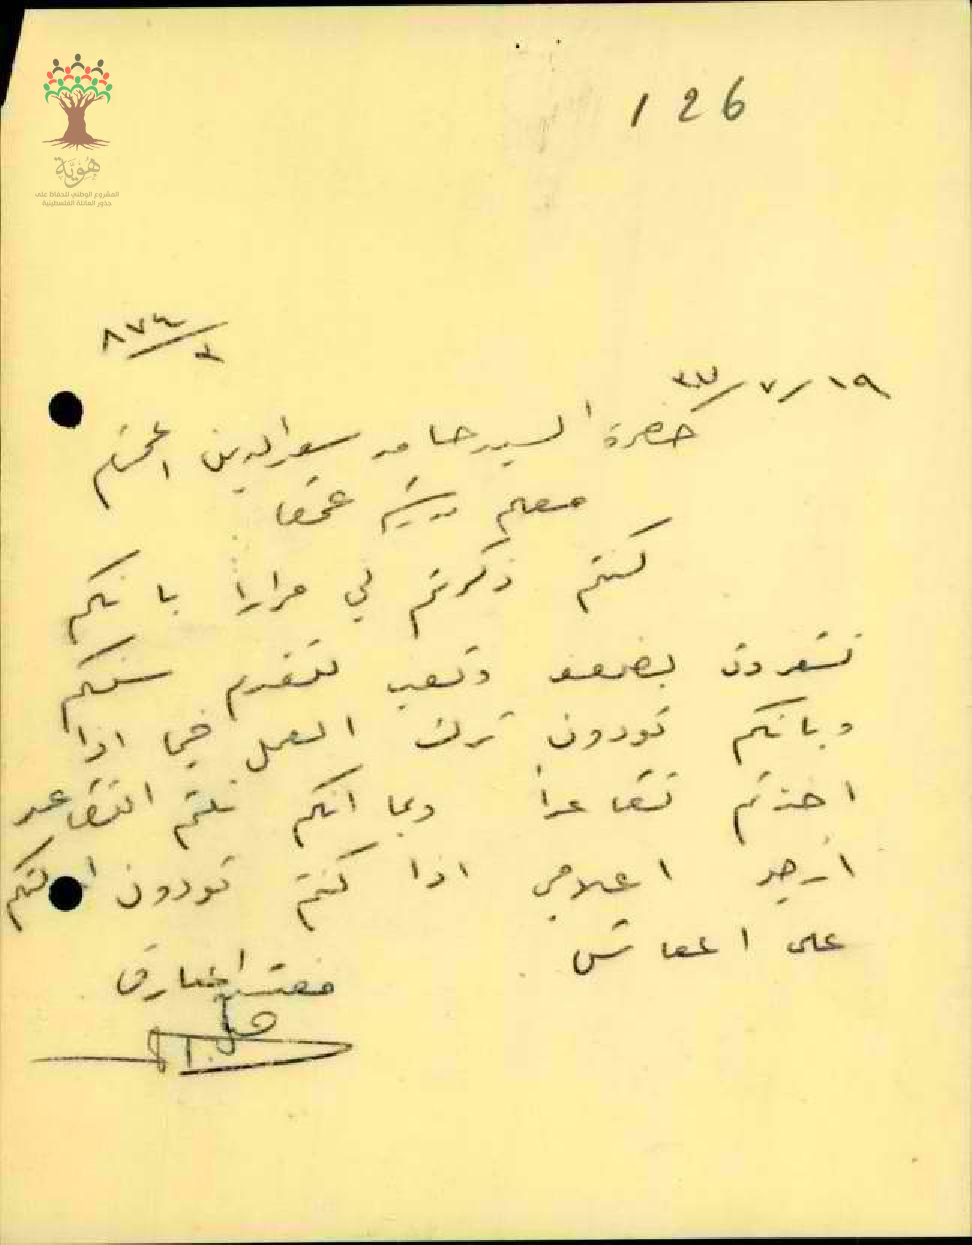 126
هُوِيَّة
المشروع الوطني للحفاظ على
جذور العائلة الفلسطينية
٨٧٤/٣
١٩/٧/٣٧
حضرة السيد حامد سعد الدين المحترم
معلم مدرسة عمقا
كنتم ذكرتم لي مرارا بانكم
تشعرون بضعف وتعب لتقدم سنكم
وبانكم تودون ترك العمل فيما اذا
اخذتم تقاعدا وبما انكم نلتم التقاعد
ارجو اعلامي اذا كنتم تودون
على
مفتش المعارف